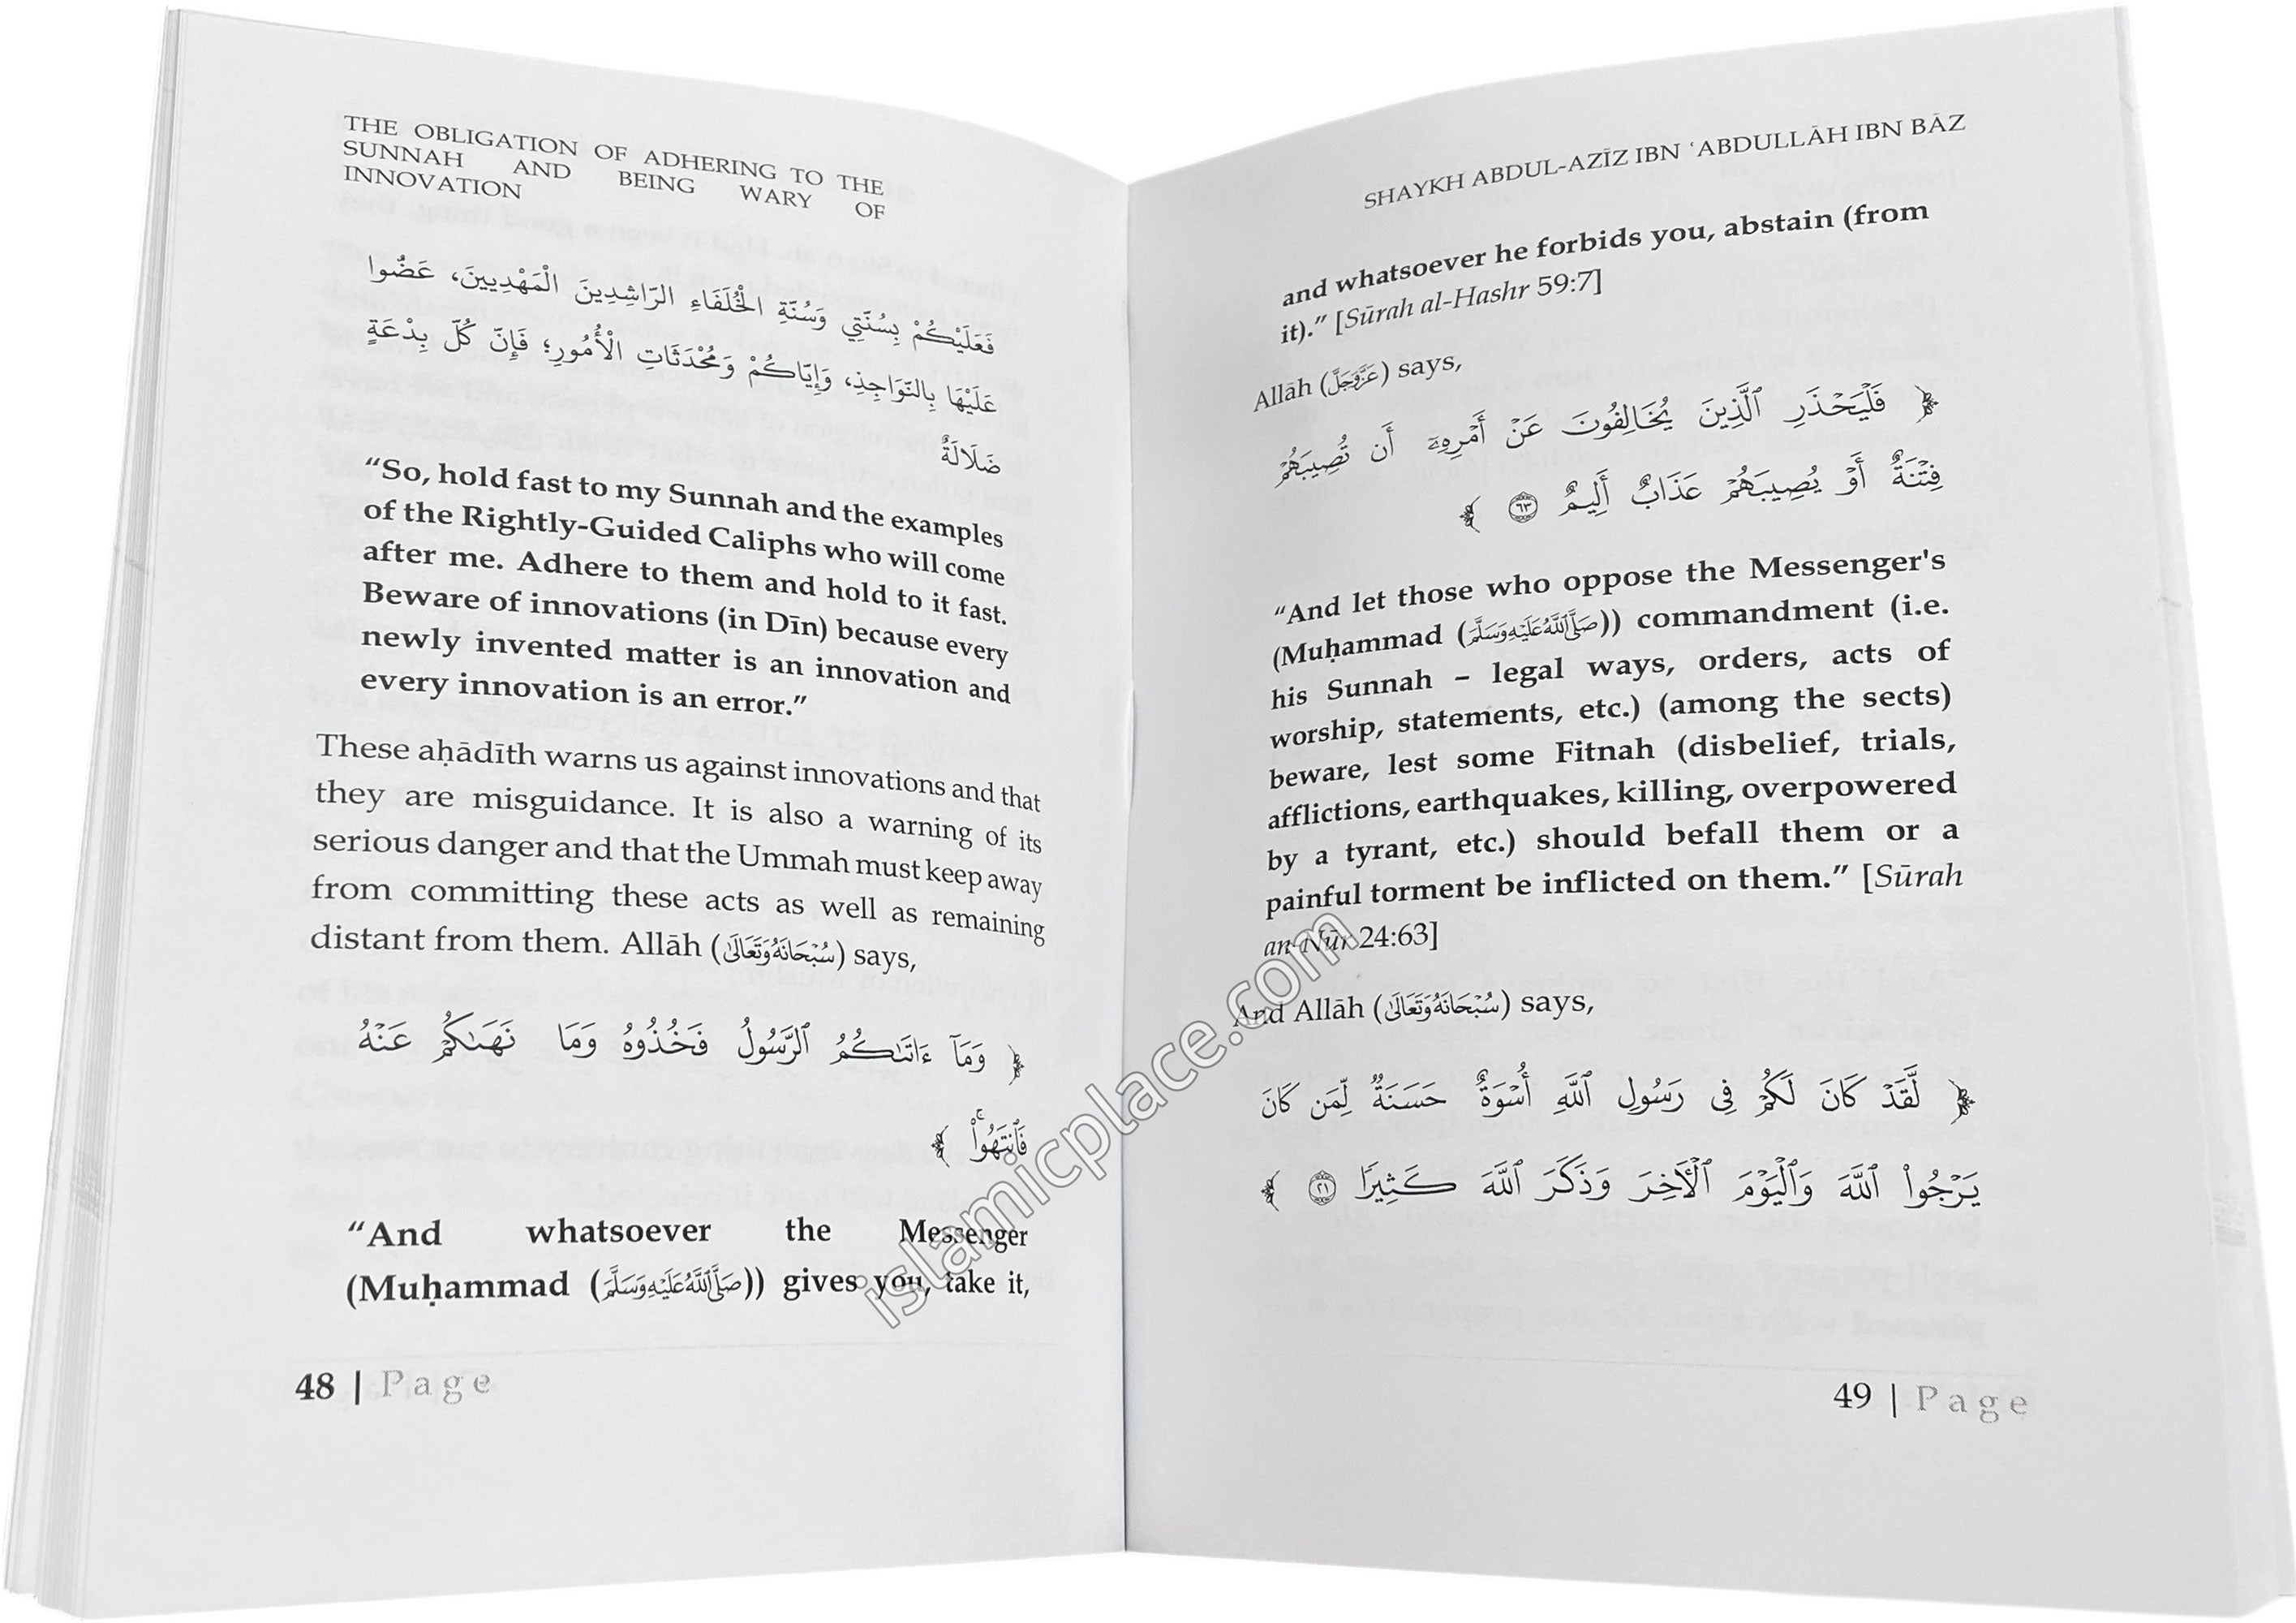 THE OBLIGATION OF ADHERING TO THE
SUNNAH AND BEING WARY OF
INNOVATION
فَعَلَيْكُمْ بِسُنَّتِي وَسُنَّةِ الْخُلَفَاءِ الرَّاشِدِينَ الْمَهْدِيينَ، عَضُّوا
عَلَيْهَا بِالنَّوَاجِذِ، وَإِيَّاكُمْ وَمُحْدَثَاتِ الْأُمُورِ؛ فَإِنَّ كُلّ بِدْعَةٍ
ضَلَالَةٌ
“So, hold fast to my Sunnah and the examples
of the Rightly-Guided Caliphs who will come
after me. Adhere to them and hold to it fast.
Beware of innovations (in Dīn) because every
newly invented matter is an innovation and
every innovation is an error.”
These aḥādīth warns us against innovations and that
they are misguidance. It is also a warning of its
serious danger and that the Ummah must keep away
from committing these acts as well as remaining
distant from them. Allāh (سُبْحَانَهُ وَتَعَالَىٰ) says,
﴿ وَمَآ ءَاتَىٰكُمُ ٱلرَّسُولُ فَخُذُوهُ وَمَا نَهَىٰكُمْ عَنْهُ
فَٱنتَهُوا۟ ۚ ﴾
“And whatsoever the Messenger
(Muḥammad (صَلَّى ٱللَّهُ عَلَيْهِ وَسَلَّمَ)) gives you, take it,
48 | Page
SHAYKH ABDUL-AZĪZ IBN ʿABDULLĀH IBN BĀZ
and whatsoever he forbids you, abstain (from
it).” [Sūrah al-Hashr 59:7]
Allāh (عَزَّوَجَلَّ) says,
﴿ فَلْيَحْذَرِ ٱلَّذِينَ يُخَالِفُونَ عَنْ أَمْرِهِۦٓ أَن تُصِيبَهُمْ
فِتْنَةٌ أَوْ يُصِيبَهُمْ عَذَابٌ أَلِيمٌ ٦٣ ﴾
“And let those who oppose the Messenger's
(Muḥammad (صَلَّى ٱللَّهُ عَلَيْهِ وَسَلَّمَ)) commandment (i.e.
his Sunnah – legal ways, orders, acts of
worship, statements, etc.) (among the sects)
beware, lest some Fitnah (disbelief, trials,
afflictions, earthquakes, killing, overpowered
by a tyrant, etc.) should befall them or a
painful torment be inflicted on them.” [Sūrah
an-Nūr 24:63]
And Allāh (سُبْحَانَهُ وَتَعَالَىٰ) says,
﴿ لَّقَدْ كَانَ لَكُمْ فِى رَسُولِ ٱللَّهِ أُسْوَةٌ حَسَنَةٌ لِّمَن كَانَ
يَرْجُوا۟ ٱللَّهَ وَٱلْيَوْمَ ٱلْـَٔاخِرَ وَذَكَرَ ٱللَّهَ كَثِيرًا ٢١ ﴾
49 | Page
islamicplace.com